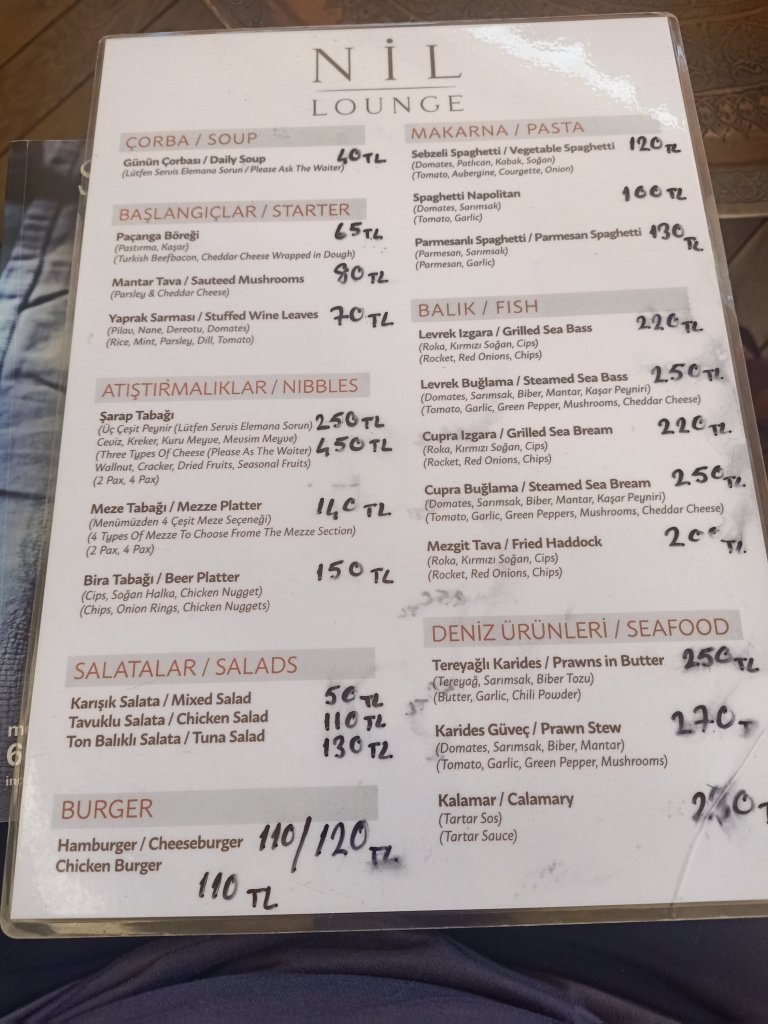 NİL
LOUNGE
ÇORBA / SOUP
Günün Çorbası / Daily Soup 40 TL
(Lütfen Servis Elemana Sorun / Please Ask The Waiter)
BAŞLANGIÇLAR / STARTER
Paçanga Böreği 65 TL
(Pastırma, Kaşar)
(Turkish Beefbacon, Cheddar Cheese Wrapped in Dough)
Mantar Tava / Sauteed Mushrooms 80 TL
(Parsley & Cheddar Cheese)
Yaprak Sarması / Stuffed Wine Leaves 70 TL
(Pilav, Nane, Dereotu, Domates)
(Rice, Mint, Parsley, Dill, Tomato)
ATIŞTIRMALIKLAR / NIBBLES
Şarap Tabağı
(Üç Çeşit Peynir (Lütfen Servis Elemana Sorun) 250 TL
Ceviz, Kreker, Kuru Meyve, Mevsim Meyve)
(Three Types Of Cheese (Please As The Waiter) 450 TL
Wallnut, Cracker, Dried Fruits, Seasonal Fruits)
(2 Pax, 4 Pax)
Meze Tabağı / Mezze Platter 140 TL
(Menümüzden 4 Çeşit Meze Seçeneği)
(4 Types Of Mezze To Choose Frome The Mezze Section)
(2 Pax, 4 Pax)
Bira Tabağı / Beer Platter 150 TL
(Cips, Soğan Halka, Chicken Nugget)
(Chips, Onion Rings, Chicken Nuggets)
SALATALAR / SALADS
Karışık Salata / Mixed Salad 50 TL
Tavuklu Salata / Chicken Salad 110 TL
Ton Balıklı Salata / Tuna Salad 130 TL
BURGER
Hamburger / Cheeseburger 110/120 TL
Chicken Burger
110 TL
MAKARNA / PASTA
Sebzeli Spaghetti / Vegetable Spaghetti 120 TL
(Domates, Patlıcan, Kabak, Soğan)
(Tomato, Aubergine, Courgette, Onion)
Spaghetti Napolitan 100 TL
(Domates, Sarımsak)
(Tomato, Garlic)
Parmesanlı Spaghetti / Parmesan Spaghetti 130 TL
(Parmesan, Sarımsak)
(Parmesan, Garlic)
BALIK / FISH
Levrek Izgara / Grilled Sea Bass 220 TL
(Roka, Kırmızı Soğan, Cips)
(Rocket, Red Onions, Chips)
Levrek Buğlama / Steamed Sea Bass 250 TL
(Domates, Sarımsak, Biber, Mantar, Kaşar Peyniri)
(Tomato, Garlic, Green Pepper, Mushrooms, Cheddar Cheese)
Cupra Izgara / Grilled Sea Bream 220 TL.
(Roka, Kırmızı Soğan, Cips)
(Rocket, Red Onions, Chips)
Cupra Buğlama / Steamed Sea Bream 250 TL.
(Domates, Sarımsak, Biber, Mantar, Kaşar Peyniri)
(Tomato, Garlic, Green Peppers, Mushrooms, Cheddar Cheese)
Mezgit Tava / Fried Haddock 200 TL.
(Roka, Kırmızı Soğan, Cips)
(Rocket, Red Onions, Chips)
DENİZ ÜRÜNLERİ / SEAFOOD
Tereyağlı Karides / Prawns in Butter 250 TL
(Tereyağ, Sarımsak, Biber Tozu)
(Butter, Garlic, Chili Powder)
Karides Güveç / Prawn Stew 270 T
(Domates, Sarımsak, Biber, Mantar)
(Tomato, Garlic, Green Pepper, Mushrooms)
Kalamar / Calamary
(Tartar Sos)
(Tartar Sauce)